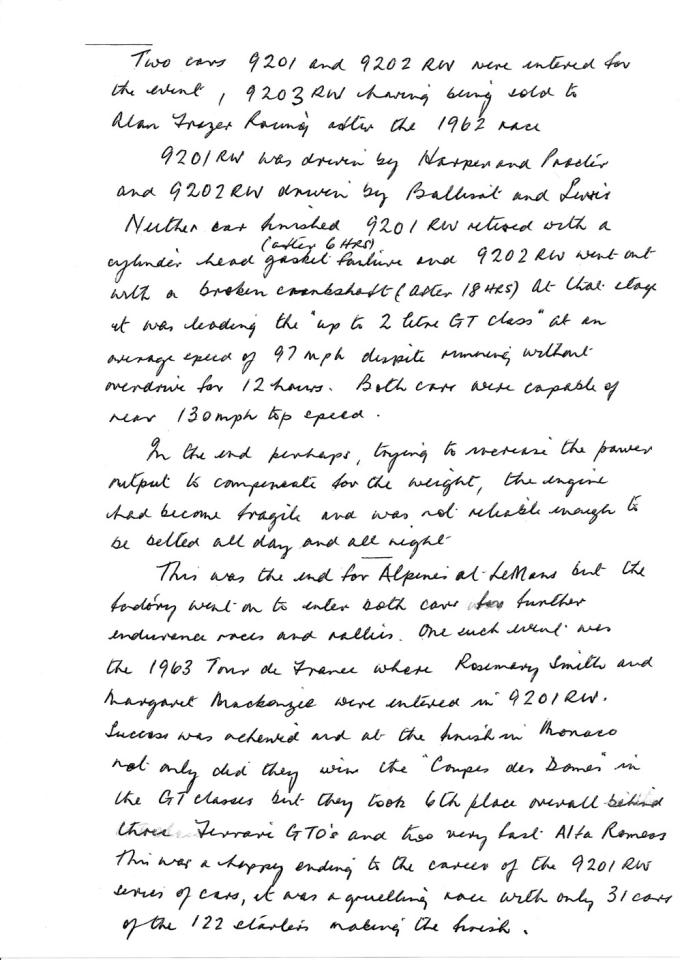 Two cars 9201 and 9202 RW were entered for
the event, 9203 RW having being sold to
Alan Frazer Racing after the 1962 race
9201 RW was driven by Harper and Procter
and 9202 RW driven by Ballisat and Lewis
Neither car finished 9201 RW retired with a
(after 6 HRS)
cylinder head gasket failure and 9202 RW went out
with a broken crankshaft (after 18 HRS) At that stage
it was leading the "up to 2 litre GT class" at an
average speed of 97 mph dispite running without
overdrive for 12 hours. Both cars were capable of
near 130 mph top speed.
In the end perhaps, trying to increase the power
output to compensate for the weight, the engine
had become fragile and was not reliable enough to
be belted all day and all night
This was the end for Alpines at LeMans but the
factory went on to enter both cars further
endurance races and rallies. One such event was
the 1963 Tour de France where Rosemary Smith and
Margaret Mackenzie were entered in 9201 RW.
Success was acheived and at the finish in Monaco
not only did they win the "Coupes des Dames" in
the GT classes but they took 6th place overall behind
three Ferrari GTO's and two very fast Alfa Romeos
This was a happy ending to the career of the 9201 RW
series of cars, it was a gruelling race with only 31 cars
of the 122 starters making the finish.